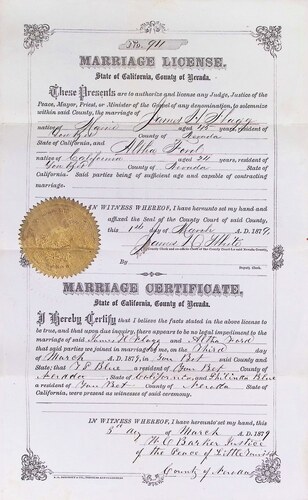 No. 911
MARRIAGE LICENSE.
State of California, County of Nevada.
These Presents are to authorize and license any Judge, Justice of the
Peace, Mayor, Priest, or Minister of the Gospel of any denomination, to solemnize
within said County, the marriage of James H Flagg
native of Maine aged 45 years, resident of
You Bet County of Nevada
State of California, and Altha Ford
native of California aged 24 years, resident of
You Bet County of Nevada State of
California. Said parties being of sufficient age and capable of contracting
marriage.
IN WITNESS WHEREOF, I have hereunto set my hand and
affixed the Seal of the County Court of said County,
this 1st day of March A. D. 1879
James
By
Deputy Clerk.
MARRIAGE CERTIFICATE.
State of California, County of Nevada.
I Hereby Certify that I believe the facts stated in the above license to
be true, and that upon due inquiry, there appears to be no legal impediment to the
marriage of said James H Flagg and Altha Ford
that said parties were joined in marriage by me, on the Third day
of March A. D. 1879, in You Bet said County and
State; that Blue a resident of You Bet County of
Nevada State of California, and Blue
a resident of You Bet County of Nevada State of
California, were present as witnesses of said ceremony.
IN WITNESS WHEREOF, I have hereunto set my hand, this
3d day of March A. D. 1879
Barker Justice
of the Peace of Little York
County of Nevada